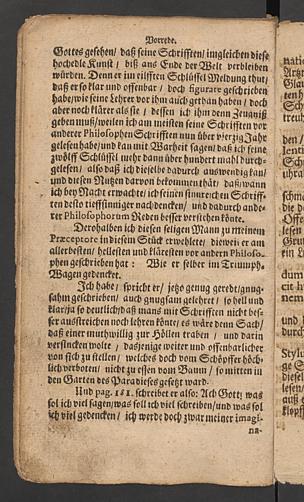 Vorrede.
Gottes gesehen/ daß seine Schrifften/ imgleichen diese
hochedle Kunst / biß ans Ende der Welt verbleiben
würden. Denn er im eilfften Schlüssel Meldung thut/
daß er so klar und offenbar / doch figurare geschrieben
habe/ wie seine Lehrer vor ihm auch gethan haben / doch
aber noch klärer als sie / dessen ich ihm denn Zeugniß
geben muß/ weilen ich am meisten seine Schrifften vor
anderer Philosophen Schrifften nun über vierzig Jahr
gelesen habe/ und kan mit Warheit sagen/ daß ich seine
zwölff Schlüssel mehr dann über hundert mahl durch-
gelesen/ also daß ich dieselbe dadurch auswendig kan/
und diesen Nutzen darvon bekommen hät/ daß wann
ich bey Nacht erwachte/ ich seinen sinnreichen Schriff-
ten desto tieffsinniger nachdencken/ und dadurch ande-
rer Philosophorum Reden besser verstehen könte.
Derohalben ich diesen seligen Mann zu meinem
Præceptore in diesem Stück erwehlete/ dieweil er am
allerbesten/ hellesten und kläresten vor andern Philoso-
phen geschrieben hat : Wie er selber im Triumph-
Wagen gedencket.
Ich habe/ spricht er/ jetzo genug geredet/ gnug-
sahm geschrieben/ auch gnugsam gelehret / so hell und
klar/ ja so deutlich/ daß mans mit Schrifften nicht bes-
ser ausstreichen noch lehren könte/ es wäre denn Sach/
daß einer muthwillig zur Höllen traben / und darin
versincken wolte / dasjenige weiter und offenbarlicher
von sich zu stellen / welches doch vom Schöpffer höch-
lich verboten/ nicht zu essen vom Baum / so mitten in
den Garten des Paradieses gesetzt ward.
Und pag. 181. schreibet er also: Ach Gott/ was
sol ich viel sagen/ was soll ich viel schreiben/ und was sol
ich viel gedencken / ich werde doch zwar meiner imagi-
na-